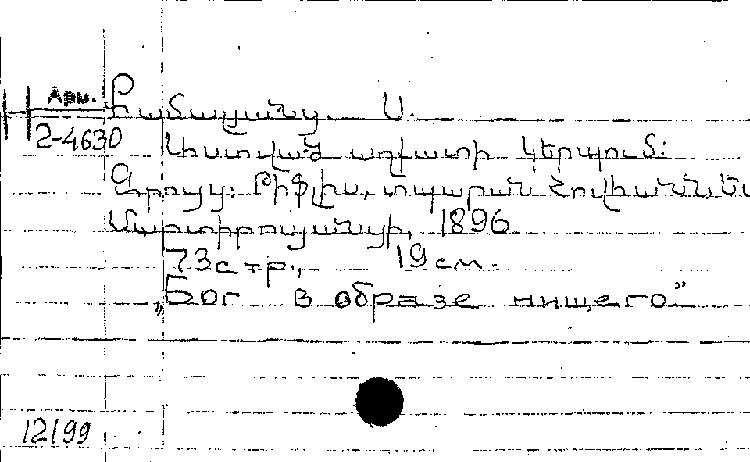 Арм.
Քամալյանց. Ս.
2-4630
Աստված աղքատի կերպում:
Զրույց: Թիֆլիս, տպարան Հովհաննես
Մարտիրոսյանցի, 1896
73 стр., 19 см.
„Бог в образе нищего”
12199